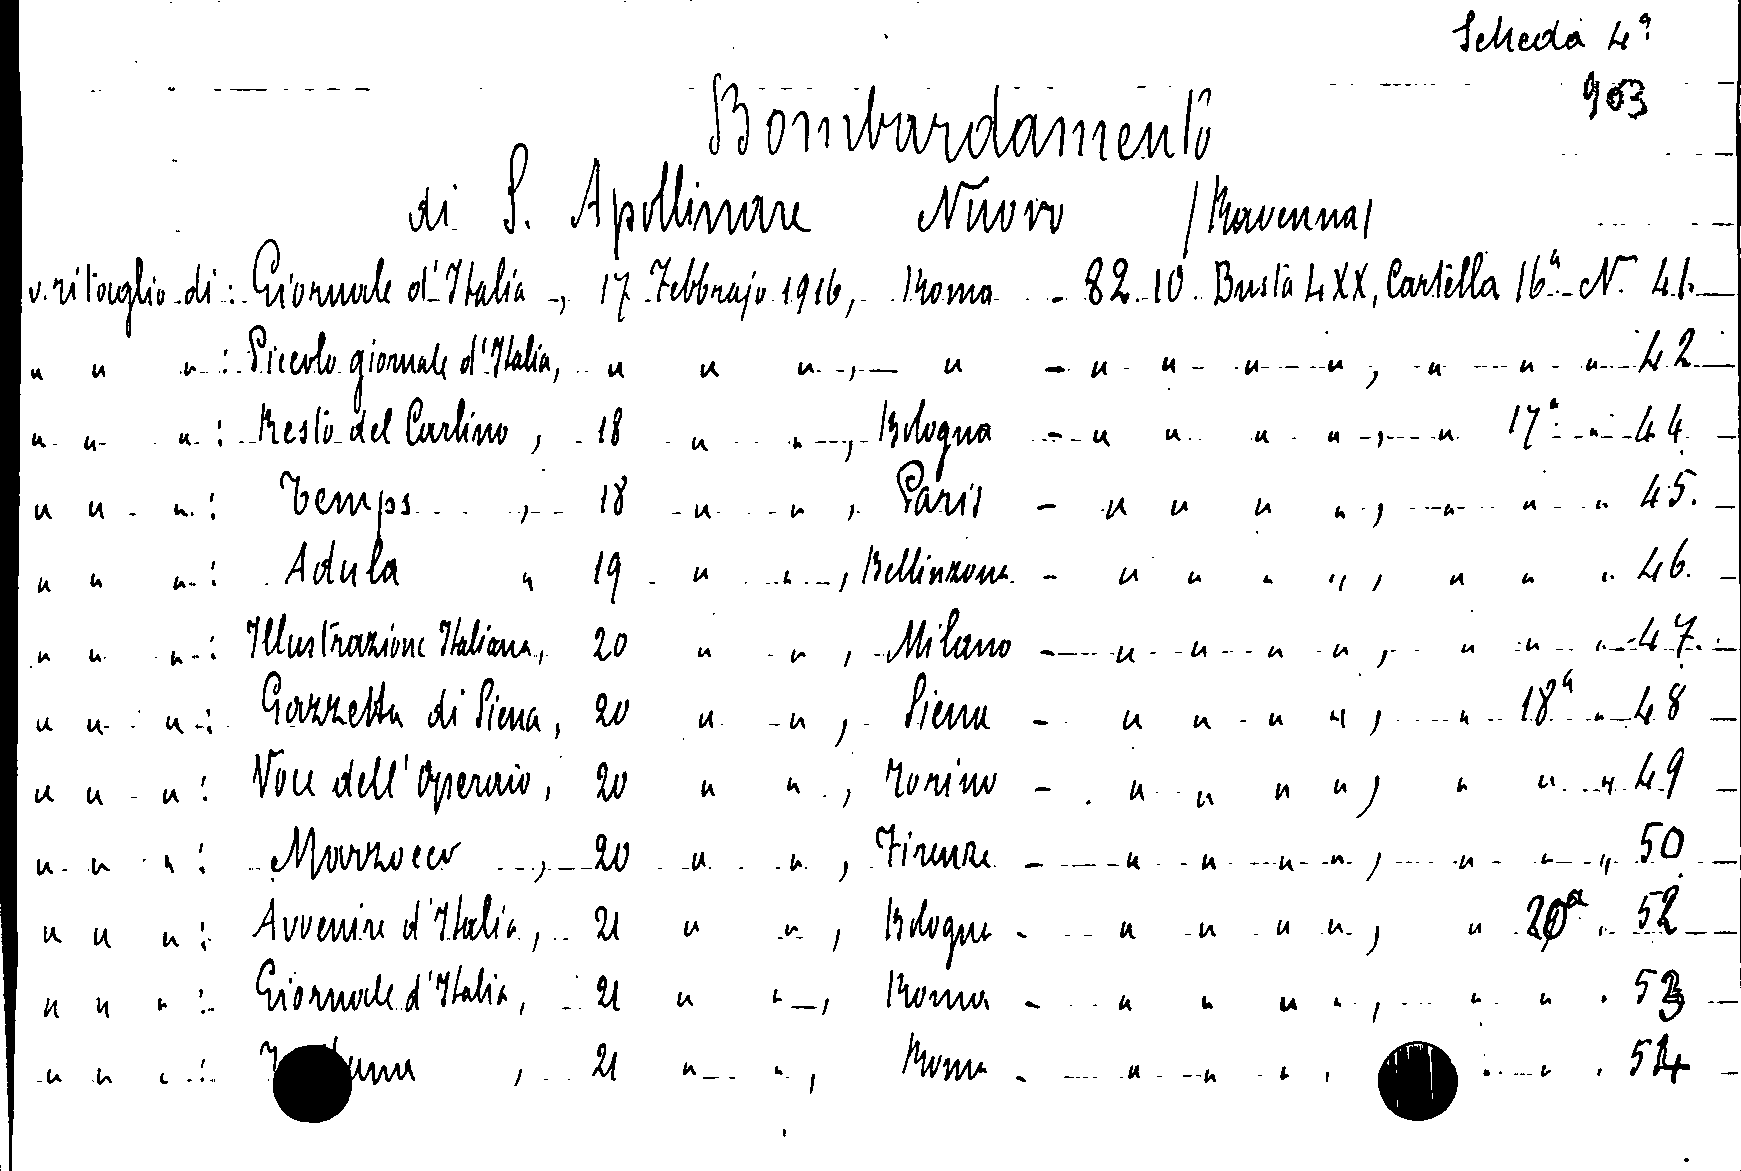 Scheda 4ª
903
Bombardamento
di S. Apollinare Nuovo /Ravenna/
v. ritaglio di: Giornale d'Italia, 17 Febbrajo 1916, Roma - 82.10. Busta 4XX, Cartella 16ª N. 41.
" " ": Piccolo giornale d'Italia, " " ", " - " " " ", " " " 42
" " ": Resto del Carlino, 18 " ", Bologna - " " " ", " 17ª " 44
" " ": Temps, 18 " ", Paris - " " " ", " " " 45.
" " ": Adula " 19 " ", Bellinzona - " " " ", " " " 46.
" " ": Illustrazione Italiana, 20 " ", Milano - " " " ", " " " 47.
" " ": Gazzetta di Siena, 20 " ", Siena - " " " ", " 18ª " 48
" " ": Voce dell'Operaio, 20 " ", Torino - " " " ", " " " 49
" " ": Marzocco, 20 " ", Firenze - " " " ", " " " 50
" " ": Avvenire d'Italia, 21 " ", Bologna - " " " ", " 20ª " 52
" " ": Giornale d'Italia, 21 " ", Roma - " " " ", " " " 53
" " ": , 21 " ", Roma - " " ", " " " 54